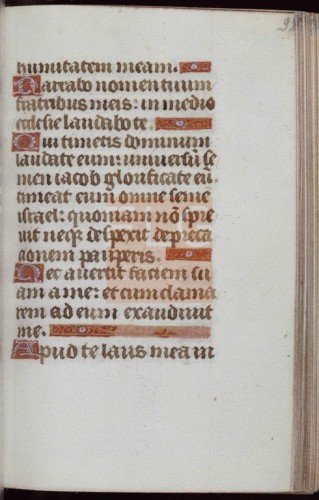 humitatem meam.
Narrabo nomen tuum
fratribus meis: in medio
ecclesie laudabo te.
Qui timetis dominum
laudate eum: universũ se
men iacob glorificate eũ.
timeat eum omne seme
israel: quoniam nõ spre
uit neqz despexit depreca
tionem pauperis.
Nec avertit faciem su
am a me: et cum clama
rem ad eum exaudiuit
me.
Apud te laus mea in